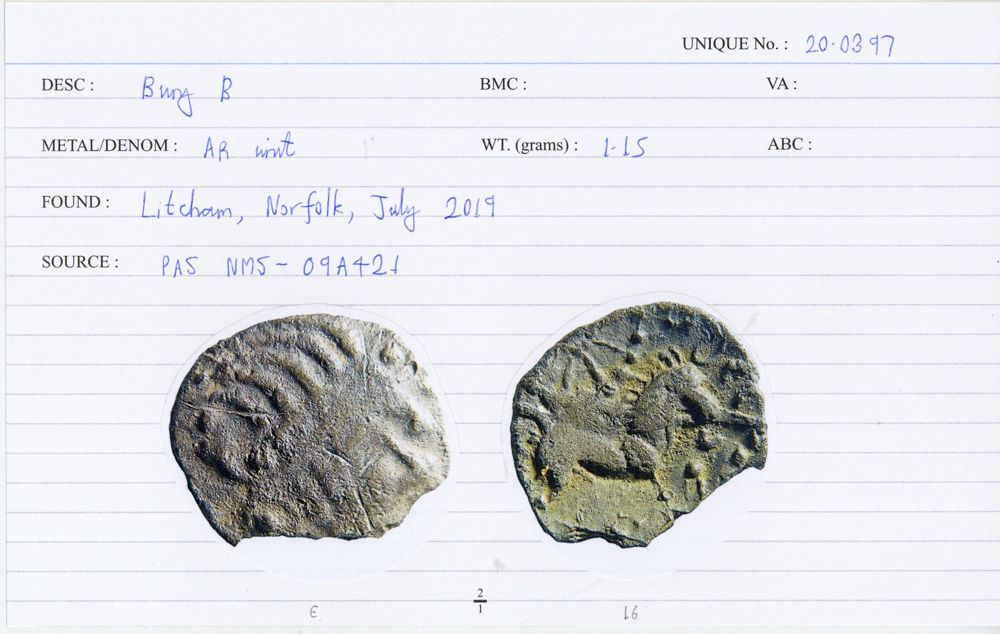 UNIQUE No. : 20.0397
DESC : Bury B BMC : VA :
METAL/DENOM : AR unit WT. (grams) : 1.15 ABC :
FOUND : Litcham, Norfolk, July 2019
SOURCE : PAS NMS-09A421
2
1
E 16